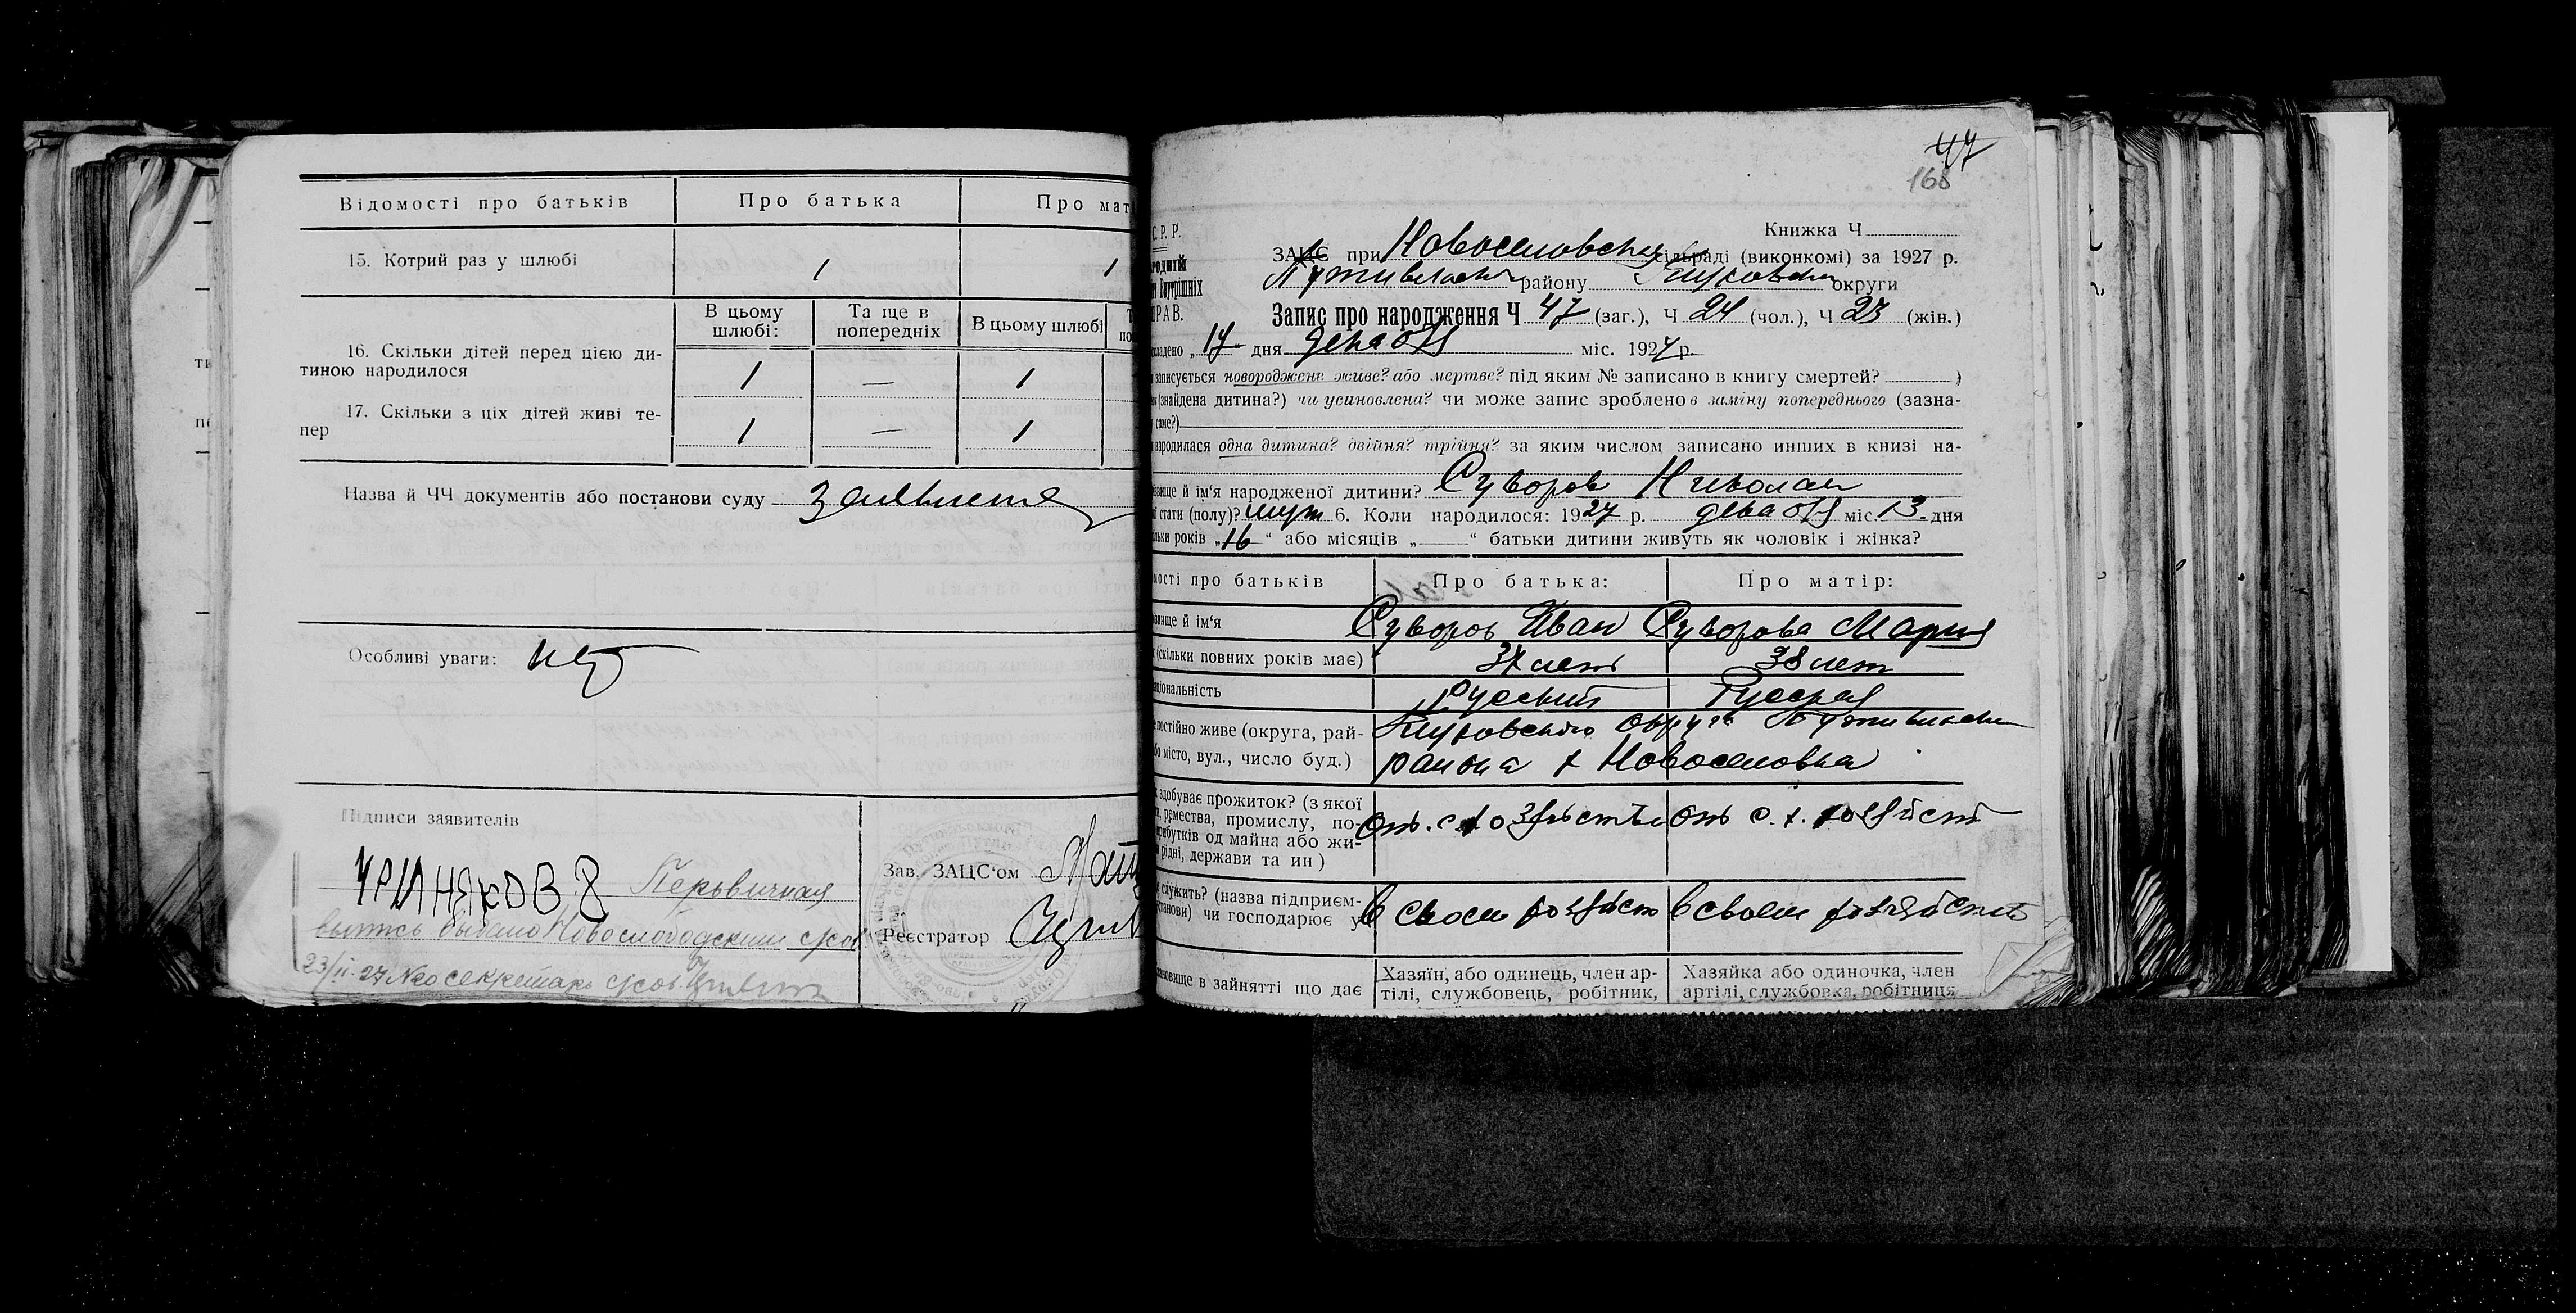 Відомості про батьків
Про батька
Про мат
15. Котрий раз у шлюбі
1
1
В цьому шлюбі:
Та ще в попередніх
В цьому шлюбі
16. Скільки дітей перед цією ди-
тиною народилося
1
—
1
17. Скільки з ціх дітей живі те-
пер
1
—
1
Назва й ЧЧ документів або постанови суду
Особливі уваги: нет
Підписи заявителів
Зав. ЗАЦС'ом
Реєстратор
Первичная
выпись выдана Новослободским
23/II-27
47
168
С. Р. Р.
Книжка Ч
ЗАЦС при Новоселовской сільраді (виконкомі) за 1927 р.
Путивльский району Глуховской округи
Запис про народження Ч 47 (заг.), Ч 24 (чол.), Ч 23 (жін.)
складено „17" дня декабря міс. 1927 р.
записується новороджене живе? або мертве? під яким № записано в книгу смертей? )
(знайдена дитина?) чи усиновлена? чи може запис зроблено в заміну попереднього (зазна-
саме?)
народилася одна дитина? двійня? трійня? за яким числом записано инших в книзі на-
звище й ім'я народженої дитини? Суворов Николай
стати (полу)? муж 6. Коли народилося: 1927 р. декабря міс. 13 дня
ільки років „16" або місяців „ " батьки дитини живуть як чоловік і жінка?
мості про батьків
Про батька:
Про матір:
звище й ім'я
Суворов Иван
Суворова Мария
(скільки повних років має)
37 лет
38 лет
ціональність
Русский
Русская
постійно живе (округа, рай-
Глуховского округа Путивльского
місто, вул., число буд.)
района х Новоселовка
здобуває прожиток? (з якої
ремества, промислу, по-
прибутків од майна або жи-
рідні, держави та ин)
служить? (назва підприєм-
чи господарює у
в своем
в своем
новище в зайнятті що дає
Хазяїн, або одинець, член ар-
тілі, службовець, робітник,
Хазяйка або одиночка, член
артілі, службовка, робітниця